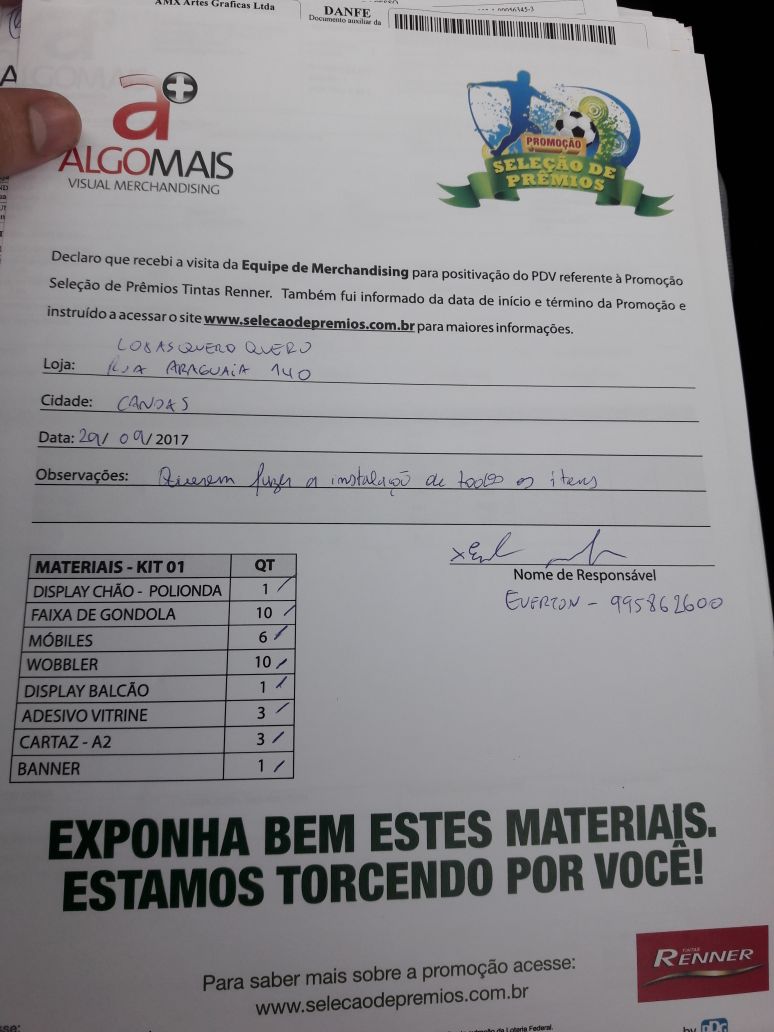 AMX Artes Graficas Ltda
DANFE
Documento auxiliar da
a+
ALGOMAIS
VISUAL MERCHANDISING
PROMOÇÃO
SELEÇÃO DE
PRÊMIOS
Declaro que recebi a visita da Equipe de Merchandising para positivação do PDV referente à Promoção
Seleção de Prêmios Tintas Renner. Também fui informado da data de início e término da Promoção e
instruído a acessar o site www.selecaodepremios.com.br para maiores informações.
LOJAS QUERO QUERO
Loja: RUA ARAGUAIA 140
Cidade: CANOAS
Data: 29/ 09/ 2017
Observações: Quiseram fazer a instalaçõ de todos os itens
Nome de Responsável
EVERTON - 995862600
MATERIAIS - KIT 01 QT
DISPLAY CHÃO - POLIONDA 1
FAIXA DE GONDOLA 10
MÓBILES 6
WOBBLER 10
DISPLAY BALCÃO 1
ADESIVO VITRINE 3
CARTAZ - A2 3
BANNER 1
EXPONHA BEM ESTES MATERIAIS.
ESTAMOS TORCENDO POR VOCÊ!
TINTAS
RENNER
Para saber mais sobre a promoção acesse:
www.selecaodepremios.com.br
by PPG